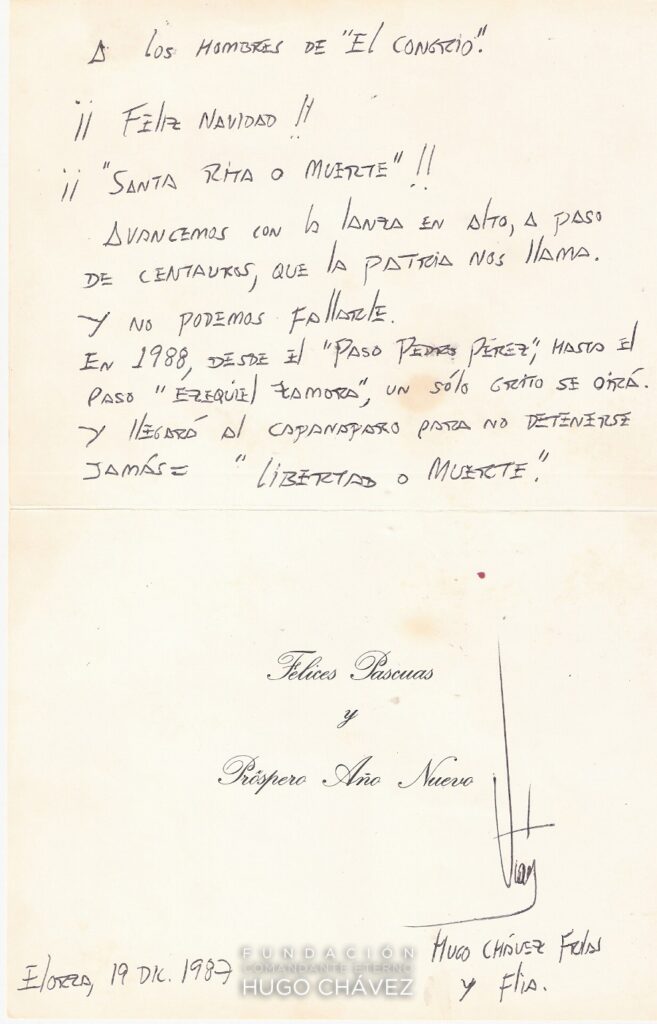 A los HOMBRES DE "El CONGRIO".
¡¡ FELIZ NAVIDAD !!
¡¡ "SANTA RITA O MUERTE" !!
AVANCEMOS CON la lANZA EN Alto, A PASO
DE CENTAUROS, QUE la PATRIA NOS llAMA.
Y NO PODEMOS FAllARlE.
EN 1988, DESDE El "PASO PEDRO PÉREZ", HASTA El
PASO "EZEQUIEl ZAMORA", UN SÓlO GRITO SE OIRÁ.
Y llEGARÁ Al CAPANAPARO PARA NO DETENERSE
JAMÁS= "lIBERTAD O MUERTE".
Felices Pascuas
y
Próspero Año Nuevo
HUGO CHÁVEZ FRÍAS
Y FlIA.
ElORZA, 19 DIC. 1987
FUNDACIÓN
COMANDANTE ETERNO
HUGO CHÁVEZ